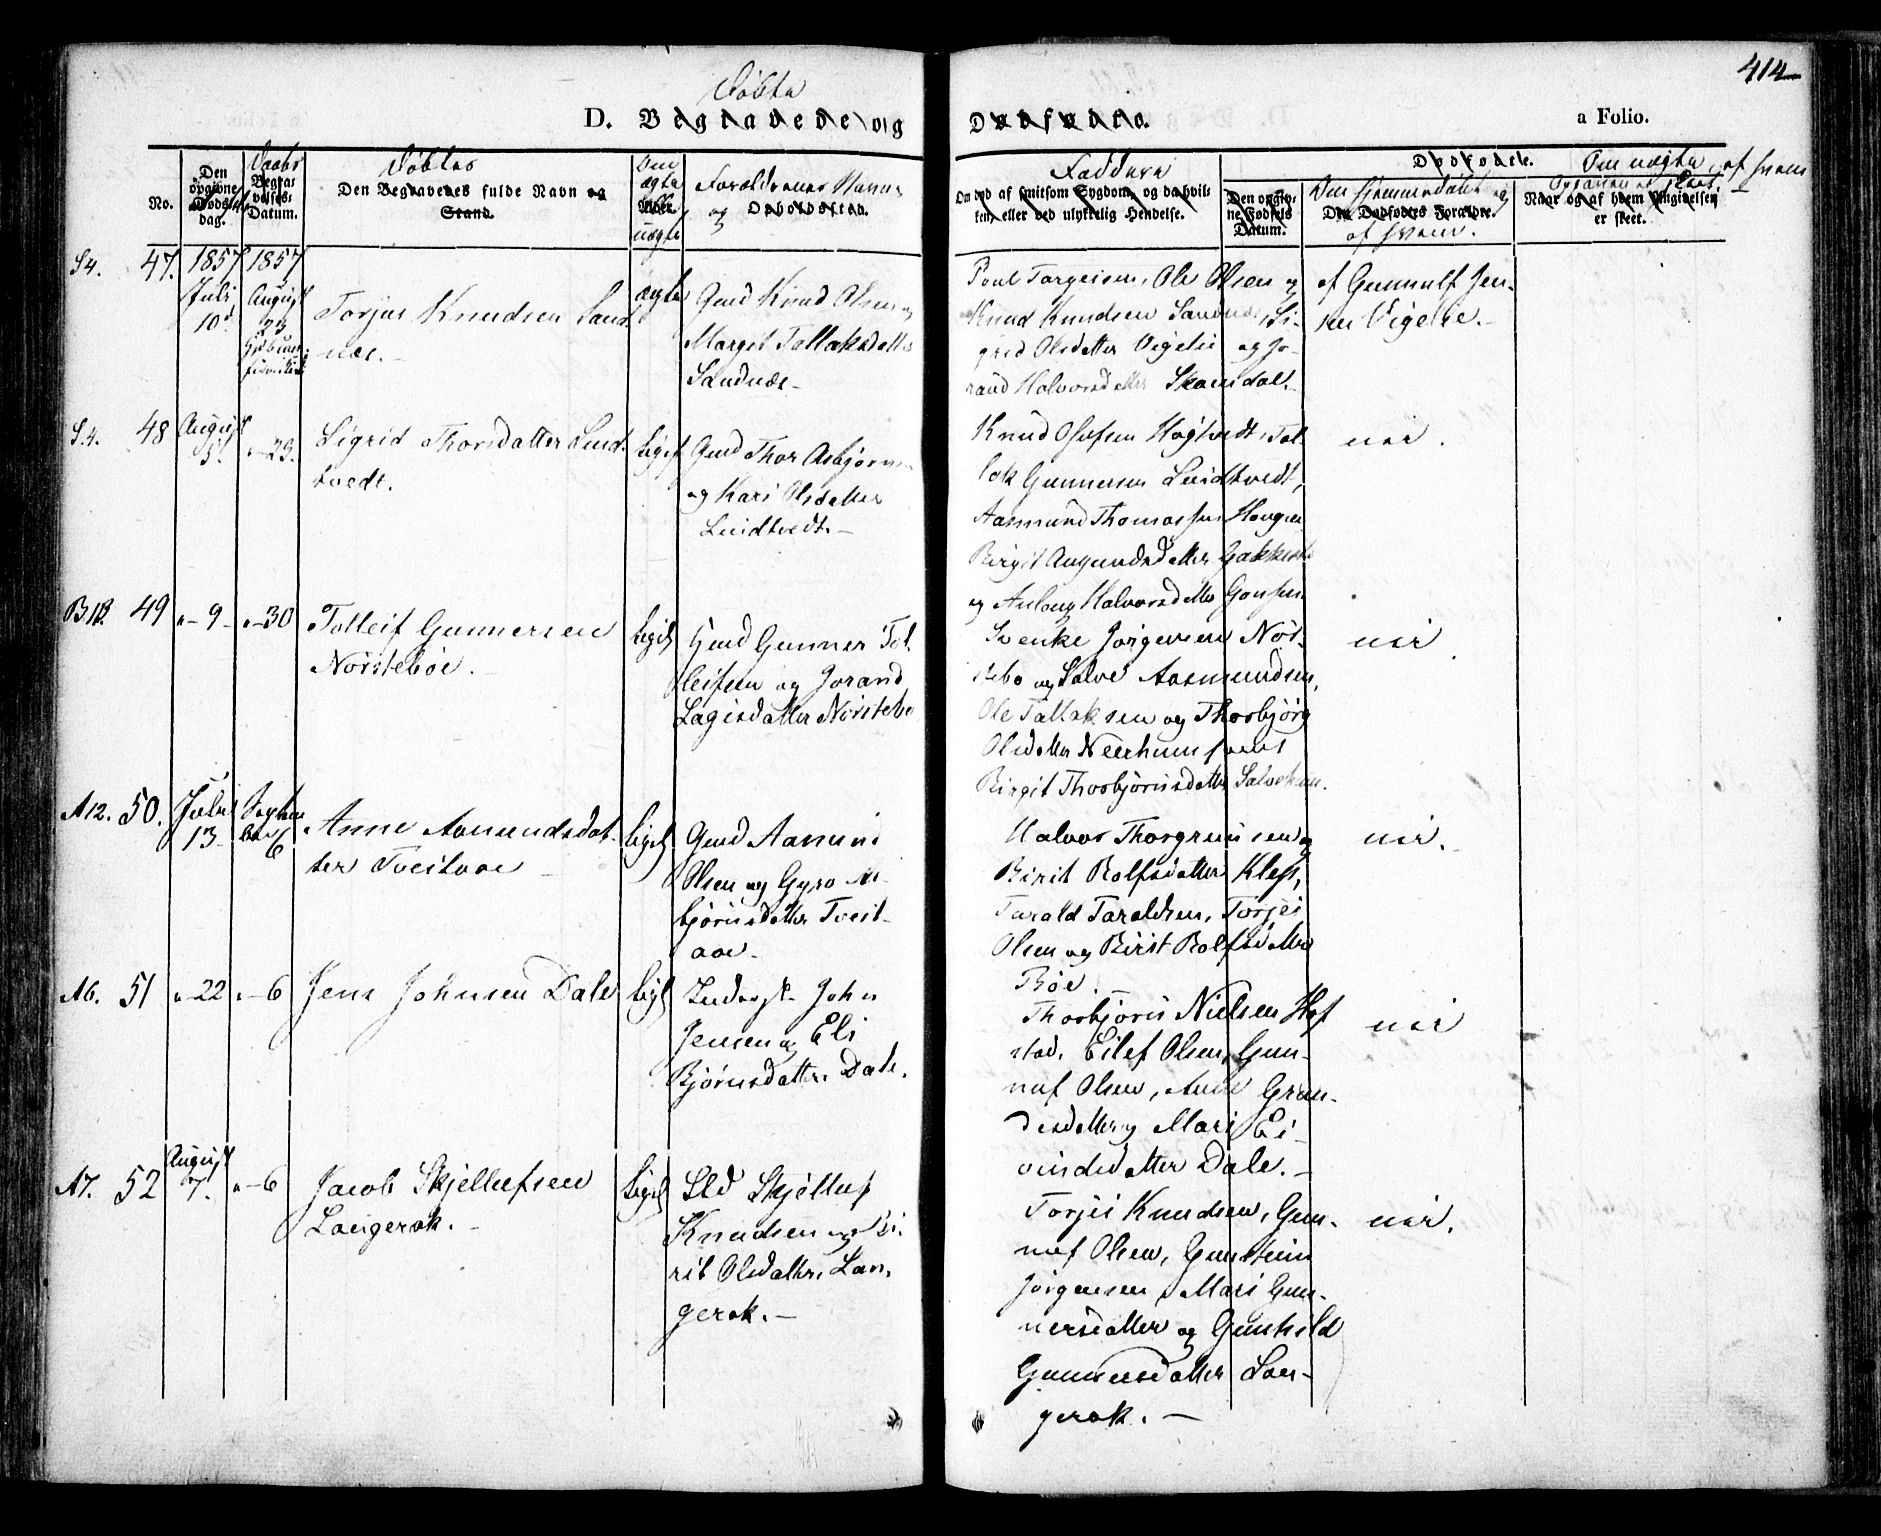 414
Døbte
D. Begravede og Dødfødte.
a Folio.
No.
Den opgivne Døds-dag.
Daabs
Begravelses-Datum.
Døbtes
Den Begravedes fulde Navn og Stand.
Om ægte eller uægte
Forældrenes Navne og
Opholdssted.
Faddere
Om død af smitsom Sygdom, og da hvilken, eller ved ulykkelig Hendelse.
Den opgivne Fødsels Datum.
Dødfødte.
Om hjemmedøbt og af hvem.
Den Dødfødtes Forældre.
Om uægte, af hvem
Naar og af hvem Angivelsen er skeet.
S4. 47. 1857 Juli 10d
1857 August 23
Torjus Knudsen Sand-
næs.-
ægte
Gmd Knud Olsen og
Margit Tallaksdatter
Sandnæs-
Poul Torgeisen, Ole Olsen og
Knud Knudsen Sandnæs, Si-
grid Olsdatter Vigelie og Jo-
rand Halvorsdatter Skomedal.-
af Gunnulf Jen-
sen Vigelie.-
S.4. 48 August 5. "-23.
Sigrid Thorsdatter Lind-
tvedt.
ligel
Gmd Thor Asbjørns.
og Kari Olsdatter
Lindtvedt.-
Knud Olufsen Høgtvedt, Tal-
lak Gunnersen Lindtvedt,
Aasmund Thomassen Haugen
Birgit Augundsdatter
og Aslaug Halvorsdatter
nei.
B18. 49 "-9- "-30
Tolleif Gunnersen
Nörstebøe.-
ligel
Gmd Gunner Tol-
leifsen og Jorand
Lagisdatter Nörstebø
Svenke Jörgensen Nör-
stebø og Salve Aasmundsen,
Ole Tallaksen og Thorbjörg
Olsdatter
Birgit Thorbjörnsdatter
nei
A12. 50. Juli 13 September 6
Anne Asmundsdat-
ter Tveitaae -
ligel
Gmd Aasmund
Olsen og Gyro As-
björnsdatter Tveit-
aae-
Halvor Thorgrimsen og
Birit Rolfsdatter Klep,
Tarald Taraldsen, Torjei
Olsen og Birit Rolfsdatter
Bøe.
nei.
A6. 51 "-22 "-6
Jens Johnsen Dale
ligel
Inderst John
Jensen og Eli
Bjørnsdatter Dale.
Thorbjörn Nielsen Hof-
stad, Eilef Olsen, Gun-
nuf Olsen, Anne Grun-
desdatter og Mari Ei-
vindsdatter Dale.-
nei
A7. 52 August 7. "-6
Jacob Skjellufsen
Langerak.-
ligel
Sld Skjelluf
Knudsen og Bi-
rit Olsdatter Lan-
gerak.-
Torjei Knudsen, Gun-
nuf Olsen, Gunstein
Jörgensen, Mari Gun-
nersdatter og Gunhild
Gunnersdatter Lan-
gerak.-
nei.